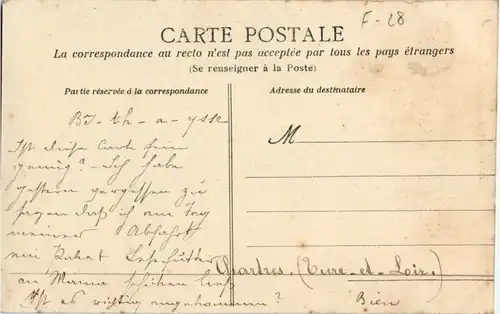 F-28
CARTE POSTALE
La correspondance au recto n'est pas acceptée par tous les pays étrangers
(Se renseigner à la Poste)
Partie réservée à la correspondance
Adresse du destinataire
M
Ist diese Carte fein
genug? - Ich habe
gestern vergessen zu
sagen daß ich am Tag
meiner Abfahrt
ein Paket
an Mama schicken ließ
Ist es richtig angekommen?
Chartres. (Eure-et-Loir.)
Bien